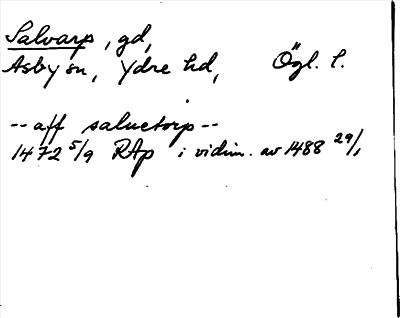 Salvarp, gd,
Asby sn, Ydre hd, Ögl. l.
-- aff saluetorp --
1472 5/9 RAp i vidim. av 1488 29/1